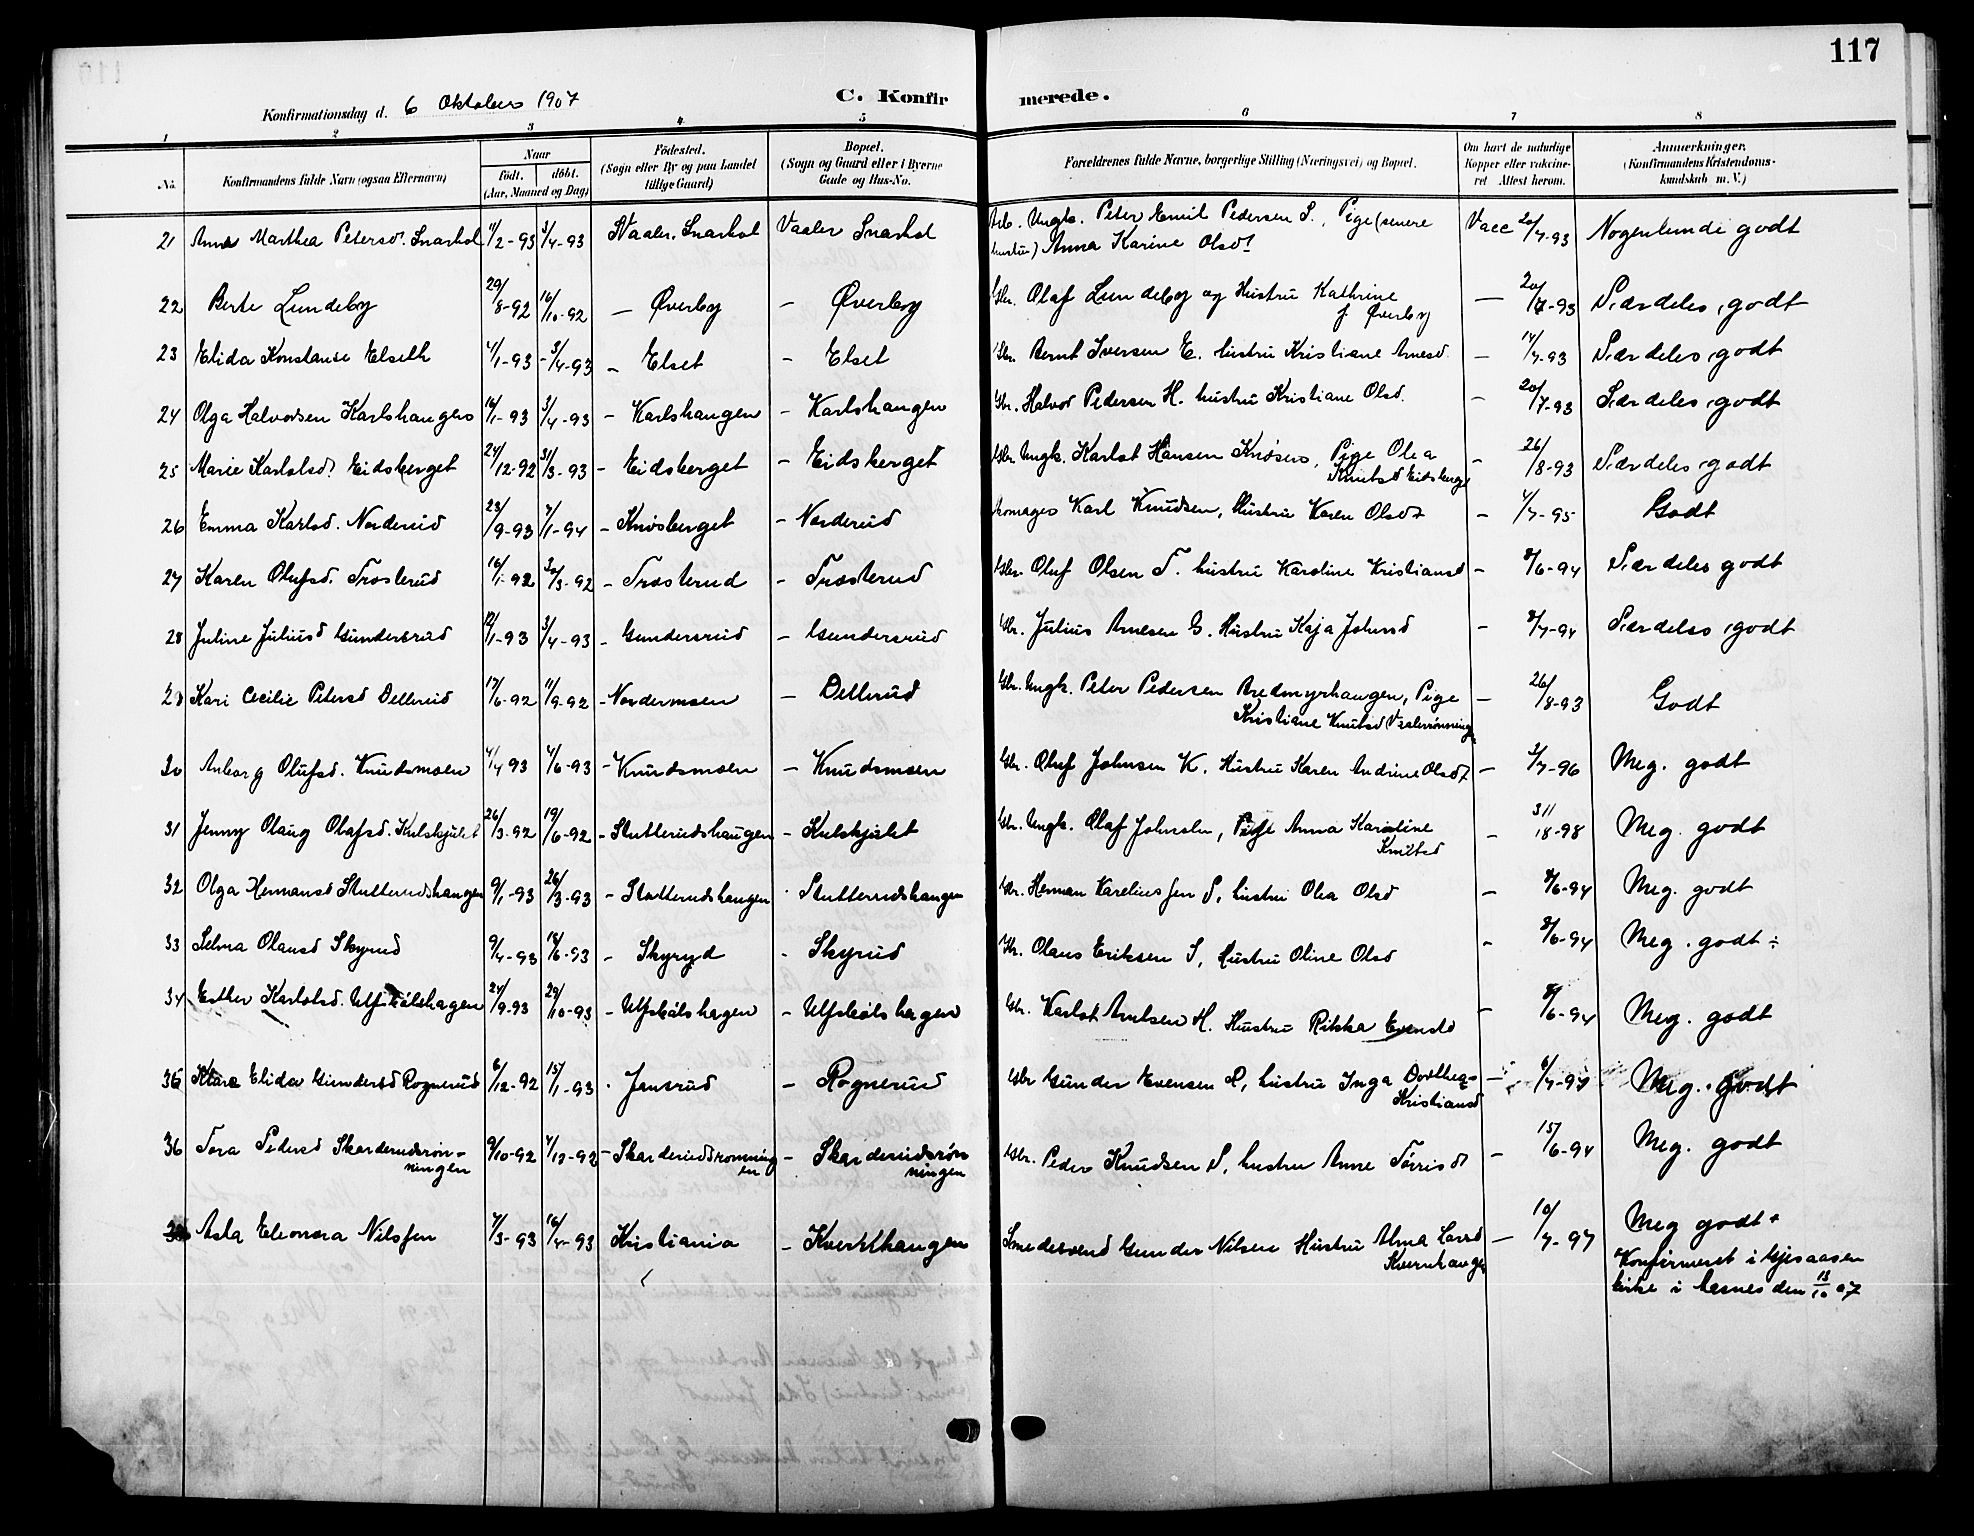 117
Konfirmationsdag d. 6 Oktober 1907
C. Konfir merede.
1 2 3 4 5 6 7 8
No. Konfirmandens fulde Navn (ogsaa Efternavn) Naar født. døbt. (Aar, Maaned og Dag) Fødested. (Sogn eller By og paa Landet tillige Gaard) Bopæl. (Sogn og Gaard eller i Byerne Gade og Hus-No. Forældrenes fulde Navne, borgerlige Stilling (Næringsvei) og Bopæl. Om havt de naturlige Kopper eller vaccineret Attest herom. Anmerkninger. (Konfirmandens Kristendomskundskab m. V.)
21 Anna Marthea Petersd. Snarhol 4/2-93 3/4-93 Vaaler, Snarhol Vaaler Snarhol Arb. Ungk. Peter Emil Pedersen S., Pige (senere
hustru) Anna Karine Olsd. Vacc 20/7-93 Nogenlunde godt
22 Berte Lundeby 29/8-92 16/10-92 – Øverby – Øverby Gbr. Olaf Lundeby og Hustru Kathrine
f Øverby – 20/7-93 Særdeles godt
23 Elida Konstanse Elseth 4/1-93 3/4-93 – Elset – Elset Gbr. Bernt Iversen E. hustru Kristiane Arnesd. – 14/7-93 Særdeles godt
24 Olga Halvorsen Karlshaugen 16/1-93 3/4-93 – Karlshaugen – Karlshaugen Gbr. Halvor Pedersen H. hustru Kristiane Olsd. – 20/7-93 Særdeles godt
25 Marie Karlotsd. Eidsberget 24/12-92 31/3-93 – Eidsberget – Eidsberget Gbr. Ungk. Karlot Hansen Knøsen, Pige Olea
Knutsd Eidsberget – 26/8-93 Særdeles godt
26 Emma Karlsd. Norderud 23/9-93 7/1-94 – Knøsberget – Norderud Skomager Karl Knudsen, Hustru Karen Olsdt – 4/7-95 Godt
27 Karen Olufsd. Trøsterud 16/1-92 30/3-92 – Trøsterud – Trøsterud Gbr. Oluf Olsen T. hustru Karoline Kristiansd – 8/6-94 Særdeles godt
28 Juline Juliusd Gundersrud 12/1-93 3/4-93 – Gundersrud – Gundersrud Gbr. Julius Arnesen G. Hustru Kaja Johnsd – 8/7-94 Særdeles godt
29 Kari Cecilie Petersd Dellerud 17/6-92 11/9-92 – Nordermoen – Dellerud Gbr. Ungk. Peter Pedersen Bredmyrhaugen, Pige
Kristiane Knutsd Vaalerrønning – 26/8-93 Godt
30 Anborg Olufsd. Knudsmoen 4/4 93 4/6-93 – Knudsmoen – Knudsmoen Gbr. Oluf Johnsen K. Hustru Karen Andrine Olsdt – 3/7-96 Meg. godt
31 Jenny Olaug Olafsd. Kulskjulet 26/3-92 19/6-92 – Stutterudshaugen – Kulskjulet Gbr. Ungk. Olaf Johnsen, Pige Anna Karoline
Knutsd – 18-98 Meg. godt
32 Olga Hermansd Stutterudshaugen 9/1-93 26/3-93 – Stutterudshaugen Stutterudshaugen Gbr. Herman Kareliussen S, hustru Olea Olsd – 8/6-94 Meg. godt
33 Selma Olausd Skyrud 9/4-93 18/6-93 – Skyryd – Skyrud Gbr. Olaus Eriksen S, Hustru Oline Olsd – 8/6-94 Meg. godt ÷
34 Esther Karlotsd. Ulfsbølshagen 24/9-93 29/10-93 – Ulfsbølshagen – Ulfsbølshagen Gbr. Karlot Arntsen H. Hustru Rikka Evensd – 8/6-94 Meg. godt
35 Klara Elida Gundersd Rognerud 6/12-92 15/1-93 Jansrud – Rognerud Gbr Gunder Evensen R, hustru Inga Dorthea
Kristiansd – 6/7-97 Meg. godt
36 Tora Pedersd Skarderudsrøn-
ningen 9/10-92 4/12-92 – Skarderudsrønning
en – Skarderudsrøn
ningen Gbr. Peder Knudsen S, hustru Anne Tørrisdt – 15/6-94 Meg. godt
Asta Eleonora Nilssen 7/3-93 16/4-93 Kristiania – Kvernhaugen Smedesvend Gunder Nilsen Hustru Alma Larsd
Kvernhaugen – 10/7-97 Meg godt +
Konfirmeret i Gjesaasen
kirke i Aasnes den 13/10 07